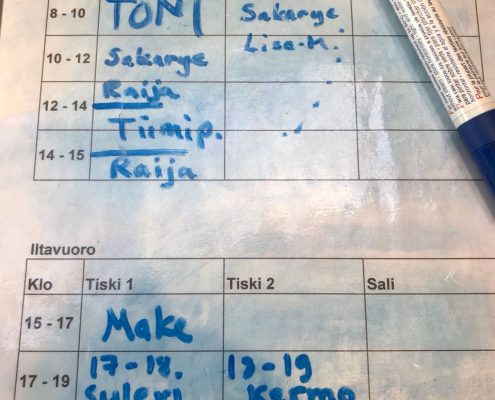 8 - 10 TONI Sakarye
Lise-M.
10 - 12 Sakarye
Raija
12 - 14
Tiimip.
14 - 15
Raija
Iltavuoro
Klo Tiski 1 Tiski 2 Sali
15 - 17 Make
17-18. 18-19
17 - 19
Suleri Kermo